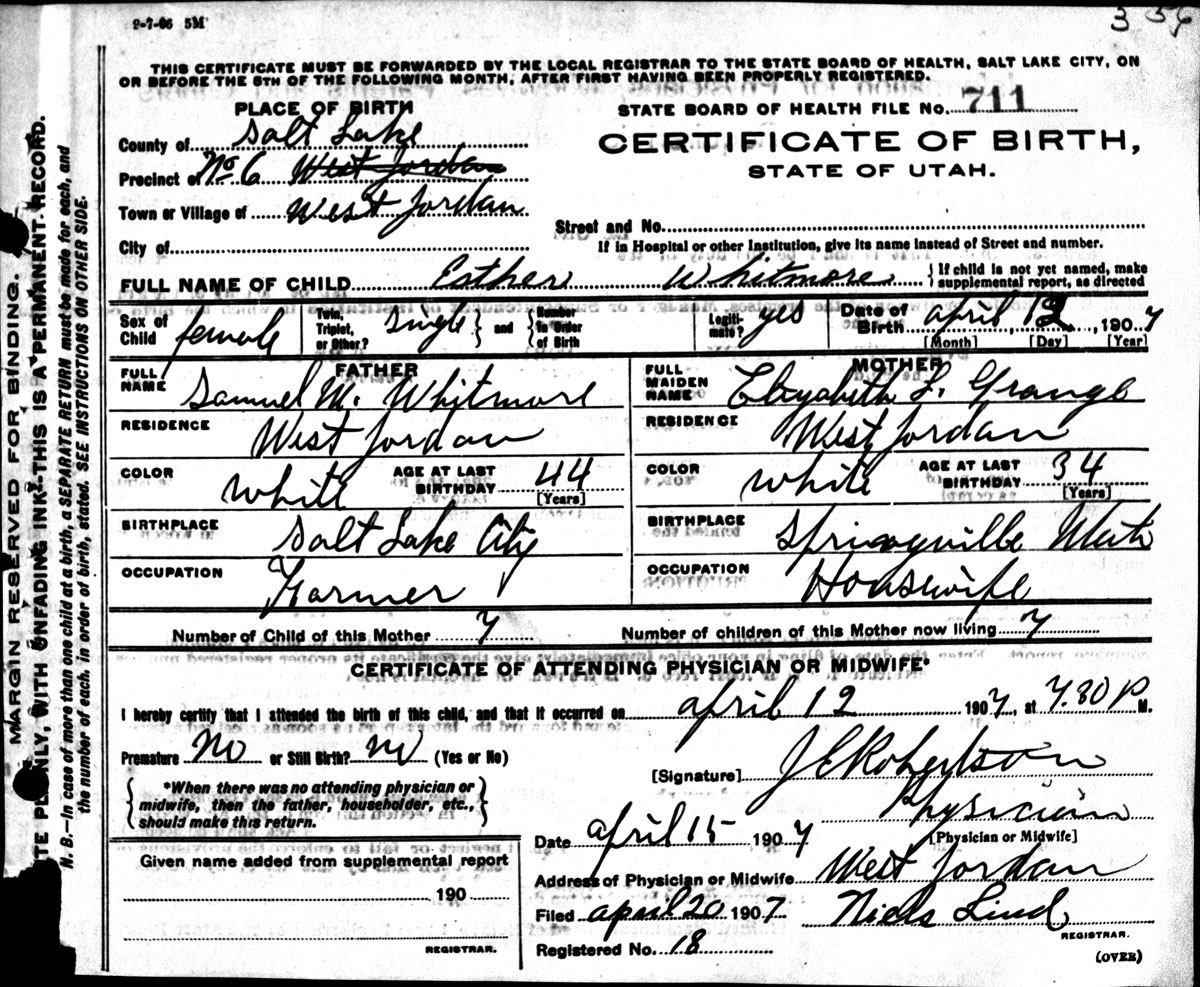 9-7-06 5M
3 56
THIS CERTIFICATE MUST BE FORWARDED BY THE LOCAL REGISTRAR TO THE STATE BOARD OF HEALTH, SALT LAKE CITY, ON
OR BEFORE THE 5TH OF THE FOLLOWING MONTH, AFTER FIRST HAVING BEEN PROPERLY REGISTERED.
PLACE OF BIRTH
County of Salt Lake
Precinct of No. 6 West Jordan
Town or Village of West Jordan
City of
STATE BOARD OF HEALTH FILE No. 711
CERTIFICATE OF BIRTH,
STATE OF UTAH.
Street and No.
If in Hospital or other Institution, give its name instead of Street and number.
FULL NAME OF CHILD Esther Whitmore { If child is not yet named, make
supplemental report, as directed
Sex of Child female
Twin, Triplet, or Other? single } and { Number in Order of Birth
Legiti-mate? yes
Date of Birth april 12, 1907
[Month] [Day] [Year]
FATHER
FULL NAME Samuel M. Whitmore
RESIDENCE West Jordan
COLOR white AGE AT LAST BIRTHDAY 44 [Years]
BIRTHPLACE Salt Lake City
OCCUPATION Farmer
MOTHER
FULL MAIDEN NAME Elizabeth L. Grange
RESIDENCE West Jordan
COLOR white AGE AT LAST BIRTHDAY 34 [Years]
BIRTHPLACE Springville Utah
OCCUPATION Housewife
Number of Child of this Mother 7 Number of children of this Mother now living 7
CERTIFICATE OF ATTENDING PHYSICIAN OR MIDWIFE*
I hereby certify that I attended the birth of this child, and that it occurred on april 12 1907, at 7.30 P M.
Premature No or Still Birth? No (Yes or No)
*When there was no attending physician or
midwife, then the father, householder, etc.,
should make this return.
[Signature] J E Robertson
Physician
[Physician or Midwife]
Date april 15 1907
Address of Physician or Midwife West Jordan
Filed april 20 1907 Niels Lind
REGISTRAR.
Registered No. 18
(OVER)
Given name added from supplemental report
190
REGISTRAR.
MARGIN RESERVED FOR BINDING.
PLAINLY, WITH UNFADING INK—THIS IS A PERMANENT RECORD.
N. B.—In case of more than one child at a birth, a SEPARATE RETURN must be made for each, and
the number of each, in order of birth, stated. SEE INSTRUCTIONS ON OTHER SIDE.